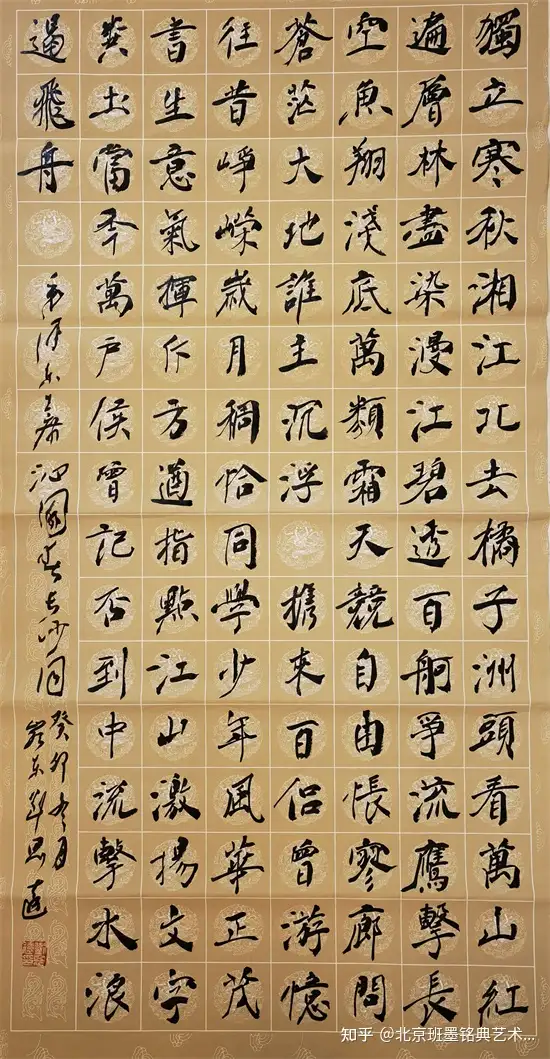 獨立寒秋湘江北去橘子洲頭看萬山紅
遍層林盡染漫江碧透百舸爭流鷹擊長
空魚翔淺底萬類霜天競自由悵寥廓問
蒼茫大地誰主沉浮 攜來百侶曾游憶
往昔崢嶸歲月稠恰同學少年風華正茂
書生意氣揮斥方遒指點江山激揚文字
糞土當年萬戶侯曾記否到中流擊水浪
遏飛舟 毛泽东 沁園春長沙词
癸卯冬月
知乎 @北京班墨铭典艺术...